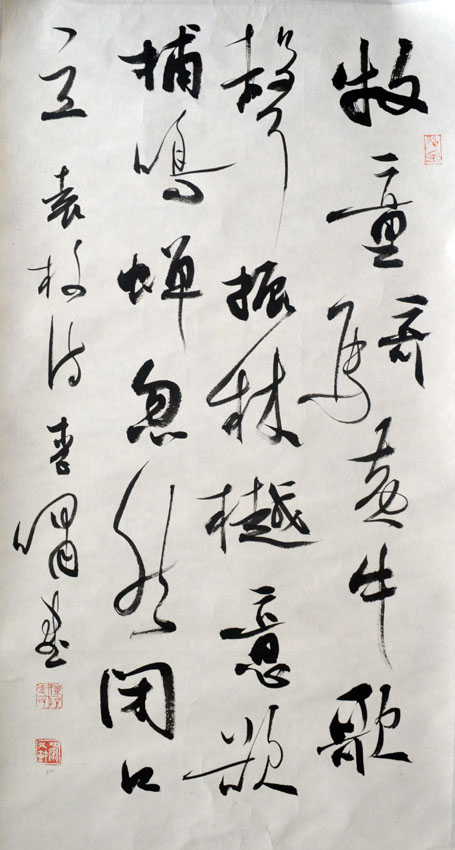 牧童骑黄牛歌
聲振林樾意欲
捕鸣蝉忽然闭口
立 袁枚诗